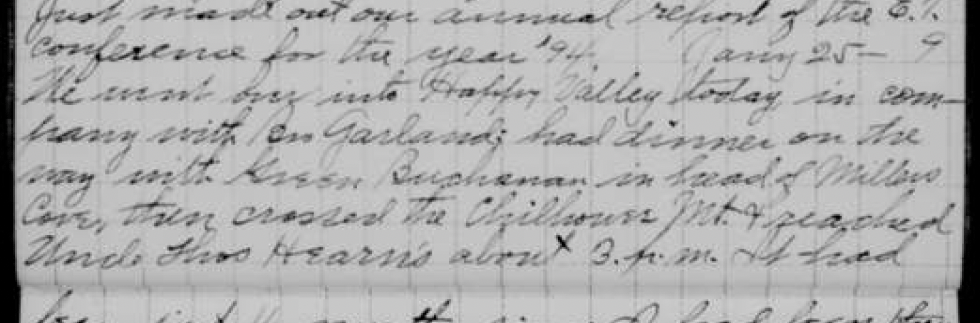 Just made out our annual report of the E.T.
conference for the year '94. Jany 25 - 9
We went over into Happy Valley today in com-
pany with Garland; had dinner on the
way with Green Buchanan in head of Millers
Cove, then crossed the Chilhower Mt. & reached
Uncle Thos Hearn's about x 3. p. m. It had